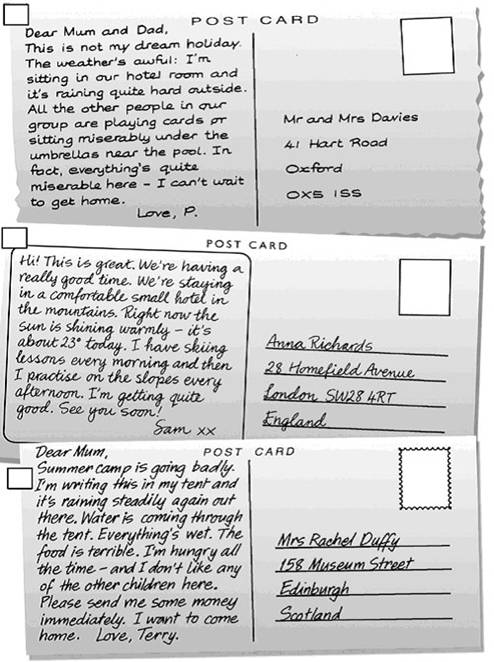 POST CARD
Dear Mum and Dad,
This is not my dream holiday.
The weather's awful: I'm
sitting in our hotel room and
it's raining quite hard outside.
All the other people in our
group are playing cards or
sitting miserably under the
umbrellas near the pool. In
fact, everything's quite
miserable here – I can't wait
to get home.
Love, P.
Mr and Mrs Davies
41 Hart Road
Oxford
OX5 1SS
POST CARD
Hi! This is great. We're having a
really good time. We're staying
in a comfortable small hotel in
the mountains. Right now the
sun is shining warmly – it's
about 23° today. I have skiing
lessons every morning and then
I practise on the slopes every
afternoon. I'm getting quite
good. See you soon!
Sam xx
Anna Richards
28 Homefield Avenue
London SW28 4RT
England
POST CARD
Dear Mum,
Summer camp is going badly.
I'm writing this in my tent and
it's raining steadily again out
there. Water is coming through
the tent. Everything's wet. The
food is terrible. I'm hungry all
the time – and I don't like any
of the other children here.
Please send me some money
immediately. I want to come
home. Love, Terry.
Mrs Rachel Duffy
158 Museum Street
Edinburgh
Scotland